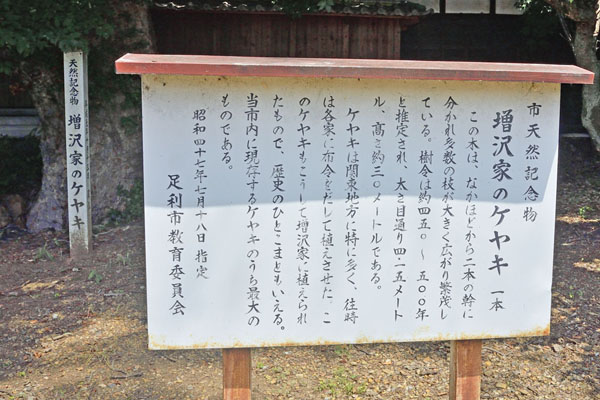 市天然記念物
増沢家のケヤキ 一本
この木は、なかほどから二本の幹に
分かれ多数の枝が大きく広がり繁茂し
ている。樹令は約四五〇〜五〇〇年
と推定され、太さ目通り四・二五メート
ル、高さ約三〇メートルである。
ケヤキは関東地方に特に多く、往時
は各家に布令をだして植えさせた。こ
のケヤキもこうして増沢家に植えられ
たもので、歴史のひとこまともいえる。
当市内に現存するケヤキのうち最大の
ものである。
昭和四十七年七月十八日 指定
足利市教育委員会
天然記念物 増沢家のケヤキ